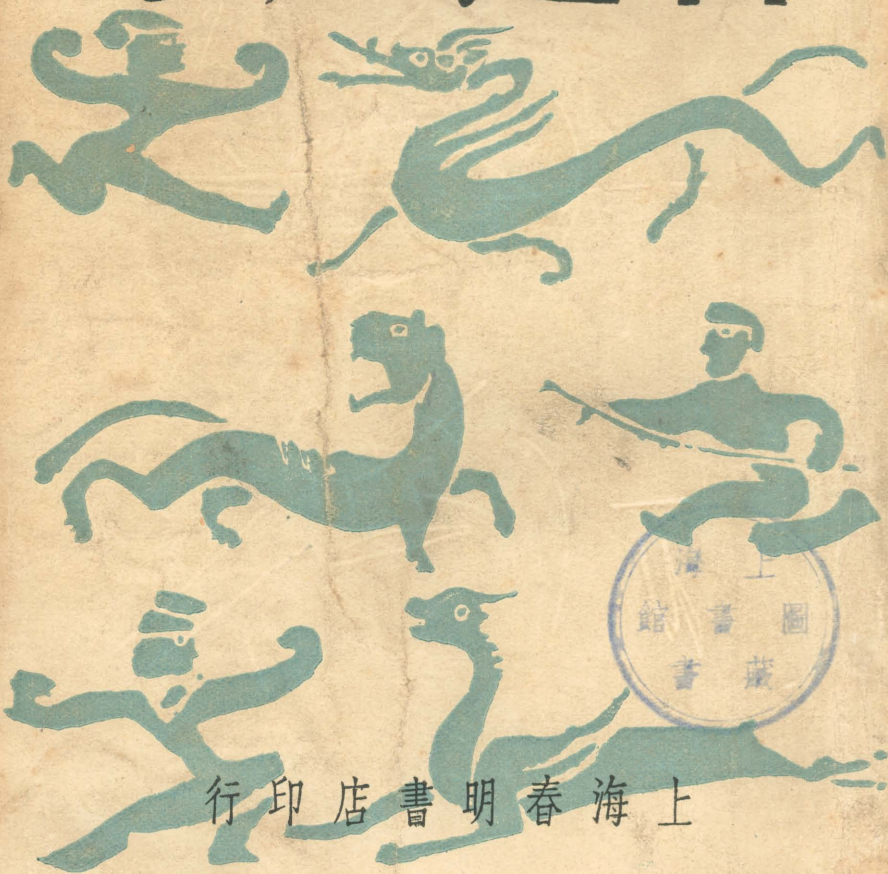 上海圖書館藏書
上海春明書店印行